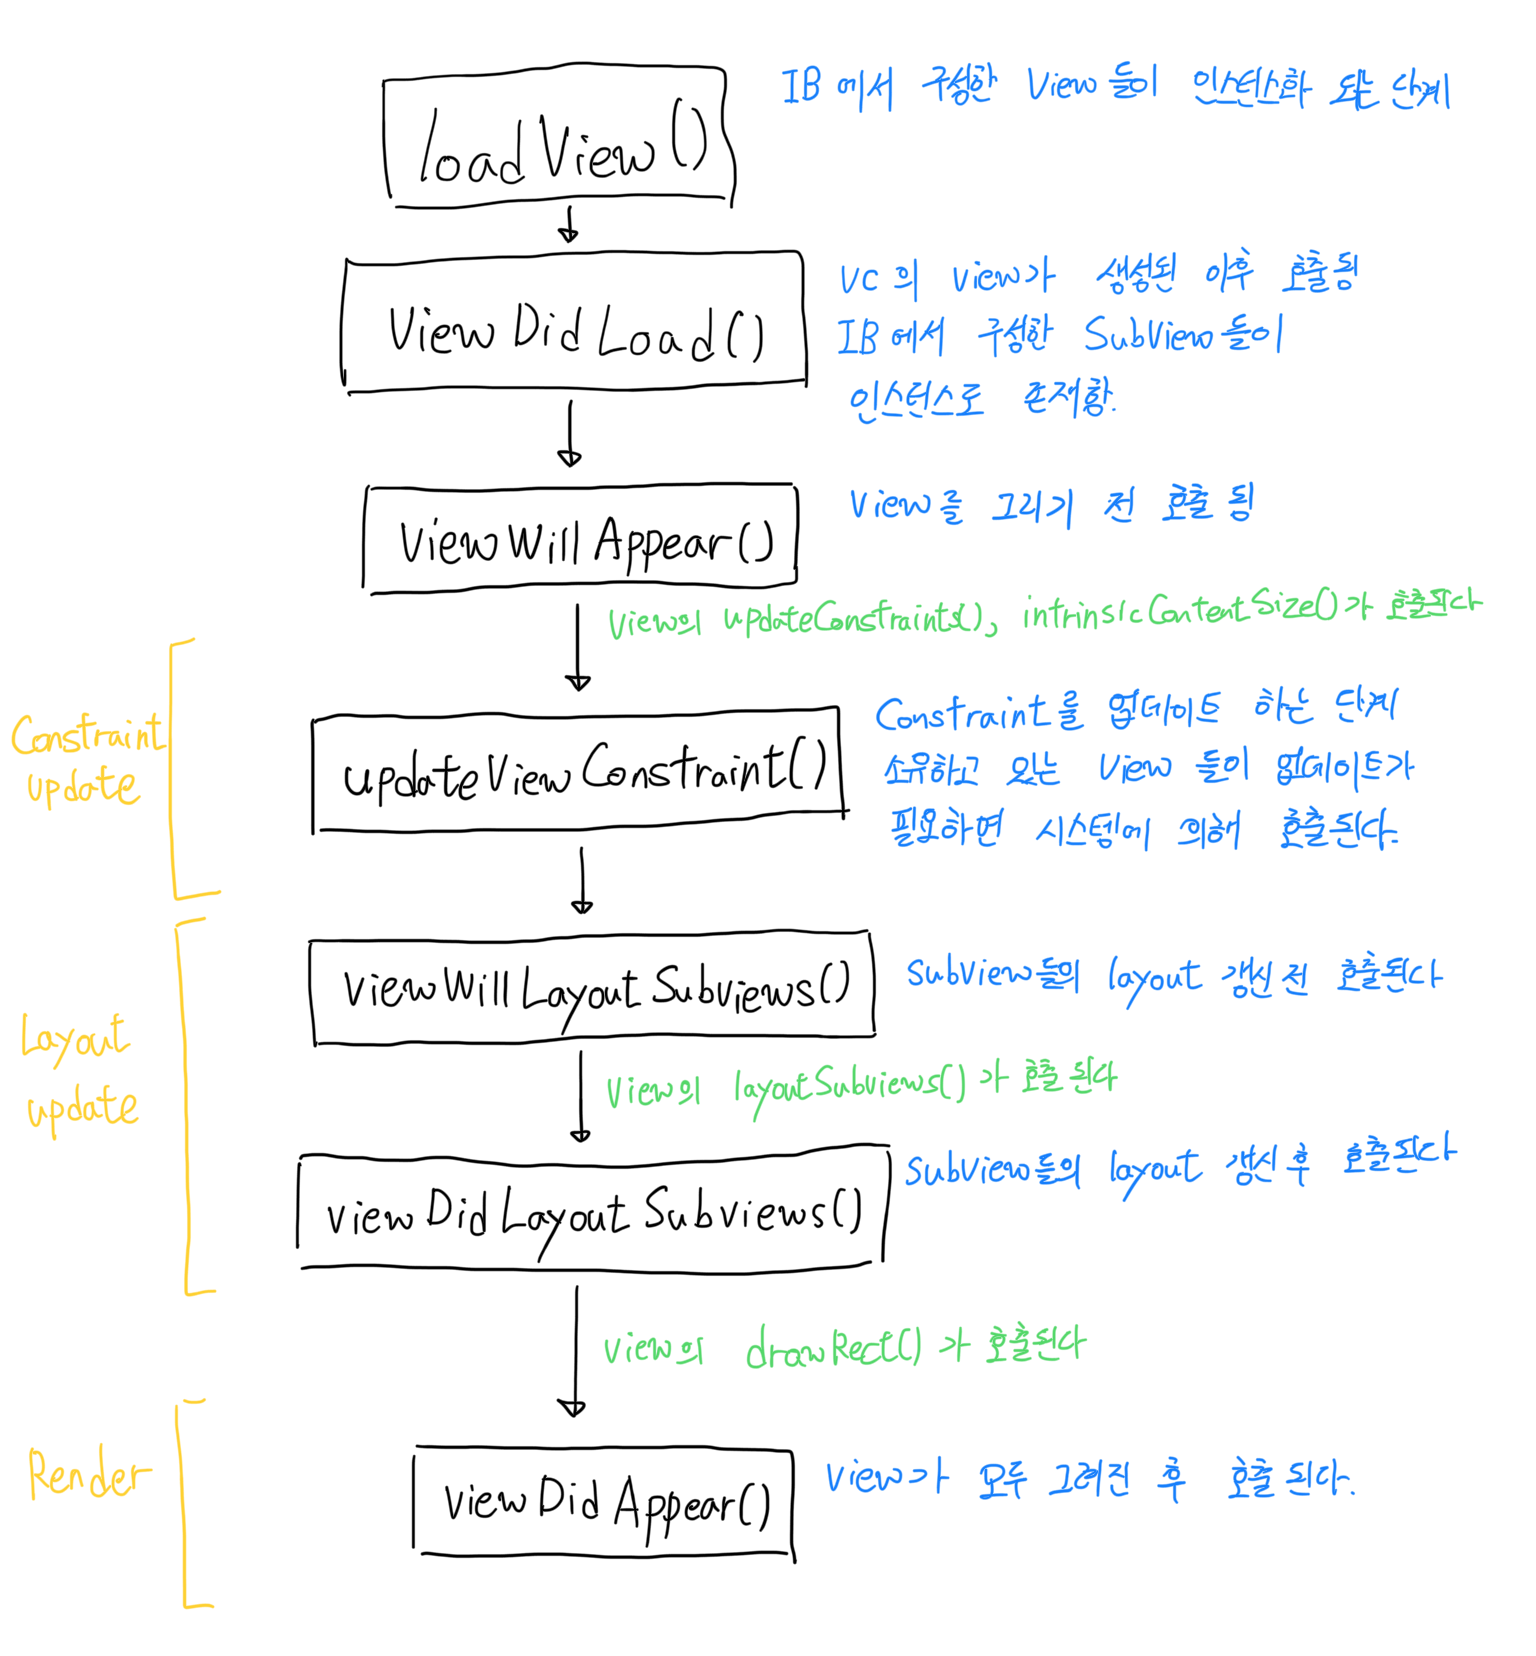 loadView()
IB에서 구성한 View들이 인스턴스화 되는 단계
ViewDidLoad()
VC의 view가 생성된 이후 호출됨
IB에서 구성한 SubView들이
인스턴스로 존재함.
ViewWillAppear()
View를 그리기 전 호출 됨
View의 updateConstraints(), intrinsicContentSize()가 호출된다
Constraint
update
updateViewConstraint()
Constraint를 업데이트 하는 단계
소유하고 있는 View 들이 업데이트가
필요하면 시스템에 의해 호출된다.
Layout
update
viewWillLayoutSubviews()
SubView들의 layout 갱신 전 호출된다
View의 layoutSubviews()가 호출된다
viewDidLayoutSubviews()
SubView들의 layout 갱신 후 호출된다
view의 drawRect()가 호출된다
Render
viewDidAppear()
view가 모두 그려진 후 호출된다.